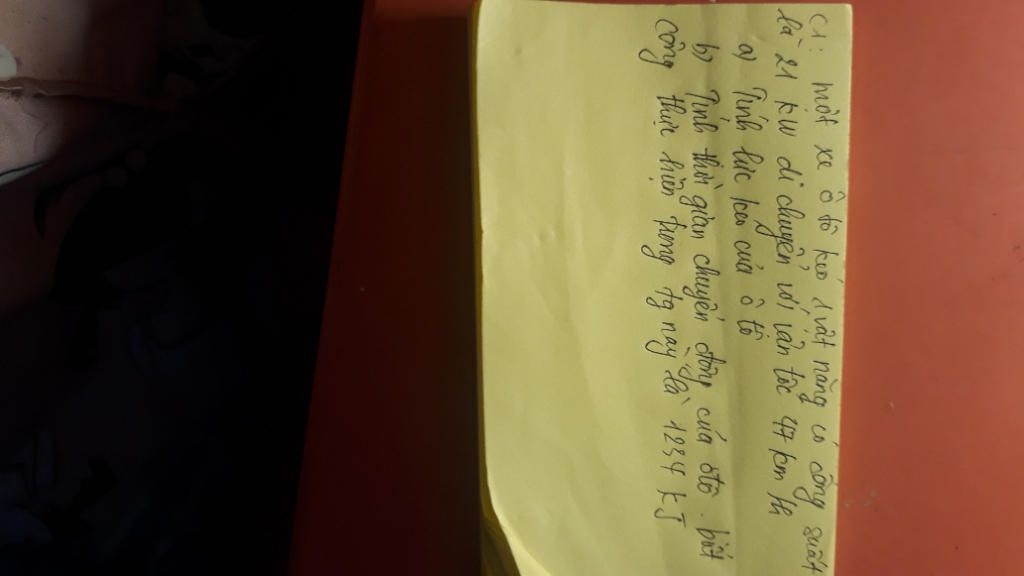 C1: một xe ô tô kéo 1 vật nặng có công suất
là 21 kW di chuyển với vận tốc 47 km/h
a) Tính lực kéo của ô tô
b) Tính thời gian chuyển động của ôtô. biết
công thực hiện trong tg này là 1234 kJ